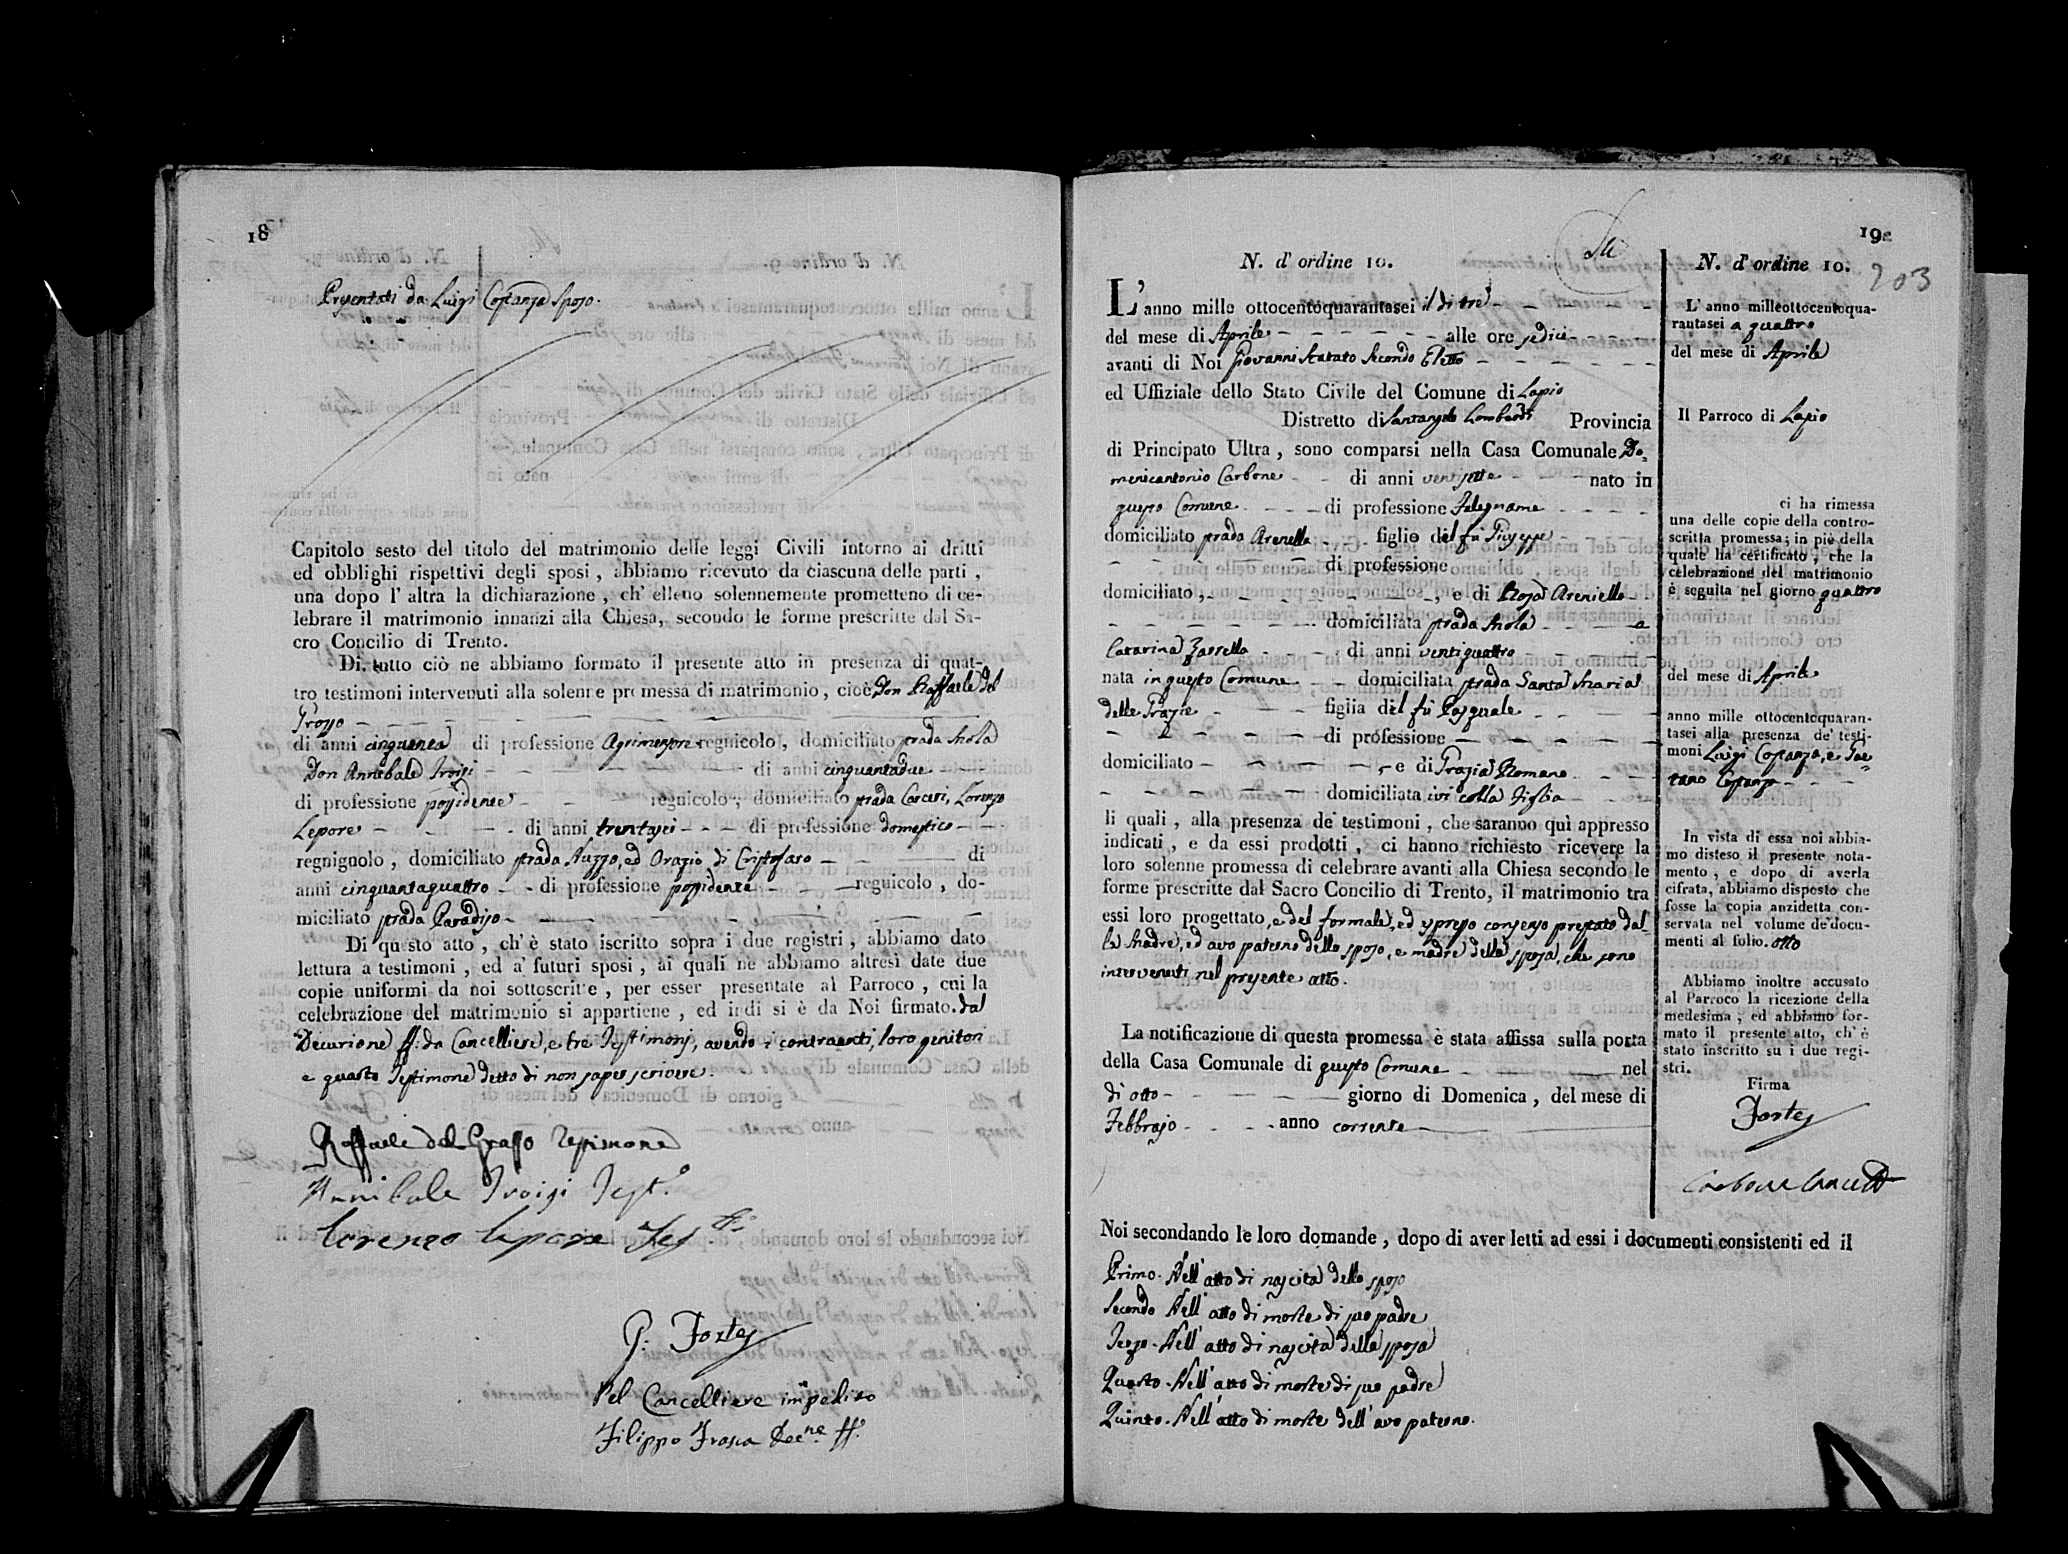 18
Presentati da Luigi Costanza sposo.
Capitolo sesto del titolo del matrimonio delle leggi Civili intorno ai dritti
ed obblighi rispettivi degli sposi, abbiamo ricevuto da ciascuna delle parti,
una dopo l' altra la dichiarazione, ch' elleno solennemente promettono di ce-
lebrare il matrimonio innanzi alla Chiesa, secondo le forme prescritte dal Sa-
cro Concilio di Trento.
Di tutto ciò ne abbiamo formato il presente atto in presenza di quat-
tro testimoni intervenuti alla solenne promessa di matrimonio, cioè Don Raffaele del
Grosso
di anni cinquanta di professione Agrimensore regnicolo, domiciliato strada Nola
Don Annibale Troisi di anni cinquantadue
di professione possidente regnicolo, domiciliato strada Carceri, Lorenzo
Lepore di anni trentasei di professione domestico
regnignolo, domiciliato strada Nuzzo, ed Orazio di Cristofaro di
anni cinquantaquattro di professione possidente regnicolo, do-
miciliato strada Paradiso
Di questo atto, ch' è stato iscritto sopra i due registri, abbiamo dato
lettura a testimoni, ed a' futuri sposi, ai quali ne abbiamo altresì date due
copie uniformi da noi sottoscritte, per esser presentate al Parroco, cui la
celebrazione del matrimonio si appartiene, ed indi si è da Noi firmato. dal
Decurione ff: da Cancelliere, e tre Testimonj, avendo i contraenti, loro genitori
e quarto Testimone detto di non saper scrivere.
Raffaele del Grosso Testimone
Annibale Troisi Test.º
Lorenzo Lepore Tes.
G. Fortes
Pel Cancelliere impedito
Filippo Frasca Dec.ne ff.
19
203
N. d' ordine 10.
L' anno mille ottocentoquarantasei il dì tre
del mese di Aprile alle ore sedici
avanti di Noi Giovanni Scarato Secondo Eletto
ed Uffiziale dello Stato Civile del Comune di Lapio
Distretto di Santangelo Lombardi Provincia
di Principato Ultra, sono comparsi nella Casa Comunale Do-
menicantonio Carbone di anni ventisette nato in
questo Comune di professione Falegname
domiciliato strada Arenella figlio del fù Giuseppe
di professione
domiciliato, e di Rosa Areniello
domiciliata strada Nola a
Catarina Zarrella di anni ventiquattro
nata in questo Comune domiciliata strada Santa Maria
delle Grazie figlia del fù Pasquale
di professione
domiciliato e di Grazia Romano
domiciliata ivi colla Figlia
li quali, alla presenza de' testimoni, che saranno quì appresso
indicati, e da essi prodotti, ci hanno richiesto ricevere la
loro solenne promessa di celebrare avanti alla Chiesa secondo le
forme prescritte dal Sacro Concilio di Trento, il matrimonio tra
essi loro progettato, e del formale, ed espresso consenso prestato dal-
la Madre, ed avo paterno dello sposo, e madre della sposa, che sono
intervenuti nel presente atto.
La notificazione di questa promessa è stata affissa sulla porta
della Casa Comunale di questo Comune nel
dì otto giorno di Domenica, del mese di
Febbrajo anno corrente
N. d' ordine 10.
L' anno milleottocentoqua-
rantasei a quattro
del mese di Aprile
Il Parroco di Lapio
ci ha rimessa
una delle copie della contro-
scritta promessa; in piè della
quale ha certificato, che la
celebrazione del matrimonio
è seguita nel giorno quattro
del mese di Aprile
anno mille ottocentoquaran-
tasei alla presenza de' testi-
moni Luigi Costanza, e Gae-
tano Costanza
In vista di essa noi abbia-
mo disteso il presente nota-
mento, e dopo di averla
cifrata, abbiamo disposto che
fosse la copia anzidetta con-
servata nel volume de' docu-
menti al folio. otto
Abbiamo inoltre accusato
al Parroco la ricezione della
medesima, ed abbiamo for-
mato il presente atto, ch' è
stato inscritto su i due regi-
stri.
Firma
Fortes
Carbone Canc.
Noi secondando le loro domande, dopo di aver letti ad essi i documenti consistenti ed il
Primo. Nell' atto di nascita dello sposo
Secondo Nell' atto di morte di suo padre
Terzo. Nell' atto di nascita della sposa
Quarto. Nell' atto di morte di suo padre
Quinto. Nell' atto di morte dell' avo paterno.